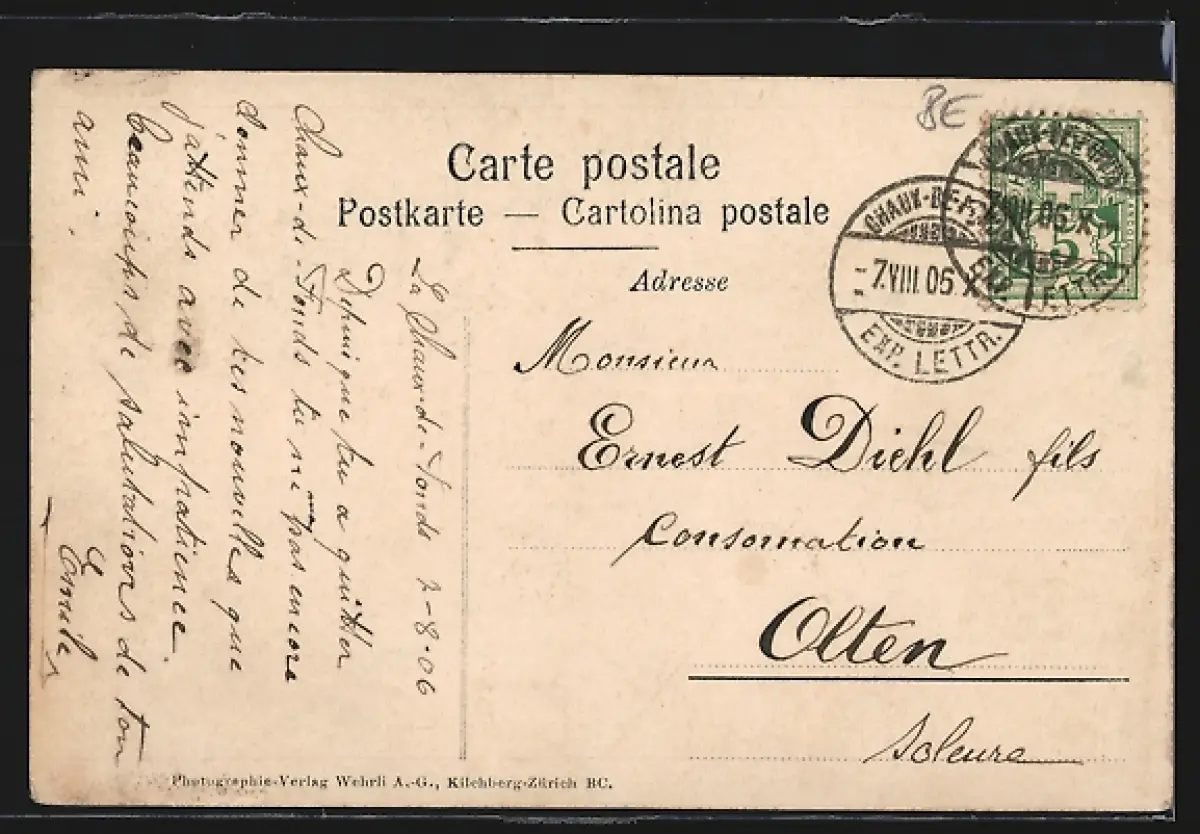 BE
Carte postale
Postkarte — Cartolina postale
Adresse
CHAUX-DE-FONDS
-7.VIII.06.X
EXP. LETTR.
CHAUX-DE-FONDS
7.VIII.06.X
EXP. LETTR.
5
Monsieur
Ernest Diehl fils
Consomation
Olten
Soleure
La Chaux-de-Fonds 2-8-06
Depuique tu a quitter
Chaux-de-Fonds tu ne pas encore
donner de tes nouvelles que
j'attends avec impatience.
Beaucoups de salutations de ton
ami.
Emile
Photographie-Verlag Wehrli A.-G., Kilchberg-Zürich BC.